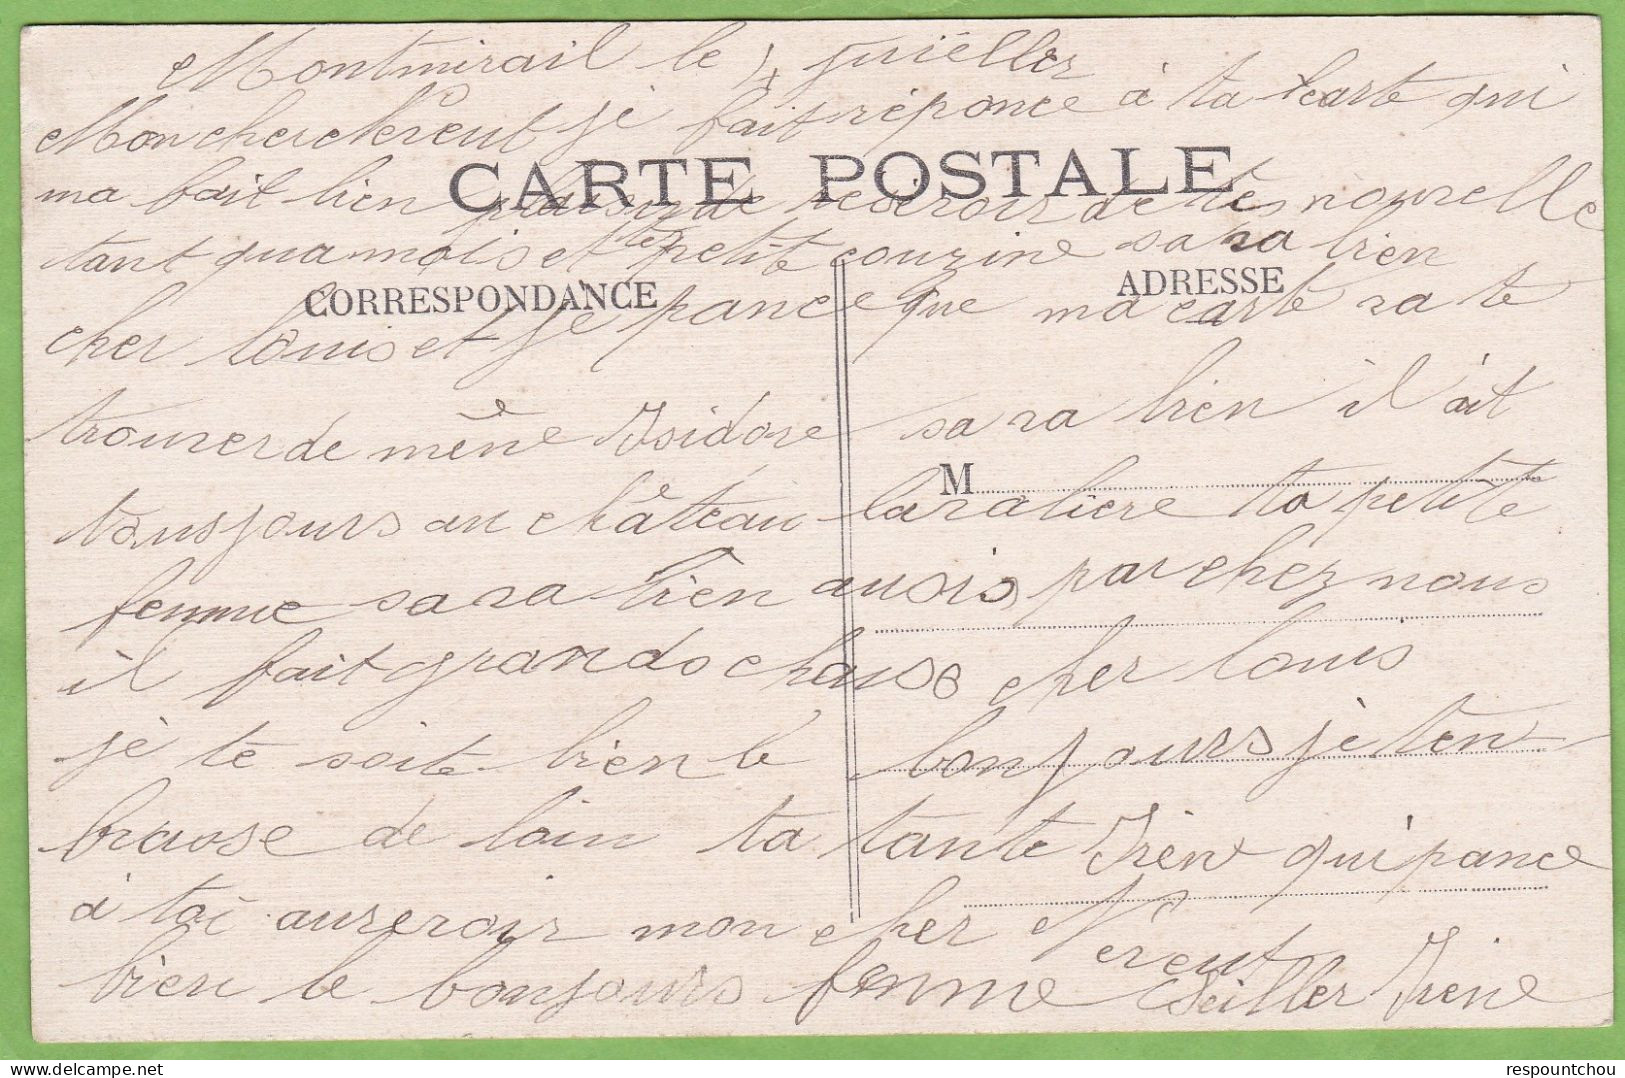 Montmirail le 4 juiëller
Mon cher Nereut je fait réponce à ta carte qui
CARTE POSTALE
ma fait bien plaisir de reseroir de tes nourelle
tant qua mois et te petite couzine sa ra bien
CORRESPONDANCE
ADRESSE
cher louis et je pance que ma carte ra te
trourer de mëne Isidore sa ra bien il ait
M
tousjours au château laratiere ta petite
femme sa ra bien ausis par chez nous
il fait grands chause cher louis
je te soite bien le bonjours je ten
brasse de loin ta tante Irène qui pance
à toi aureroir mon cher Nereut
bien le bonjours femme Seiller Irene
respountchou